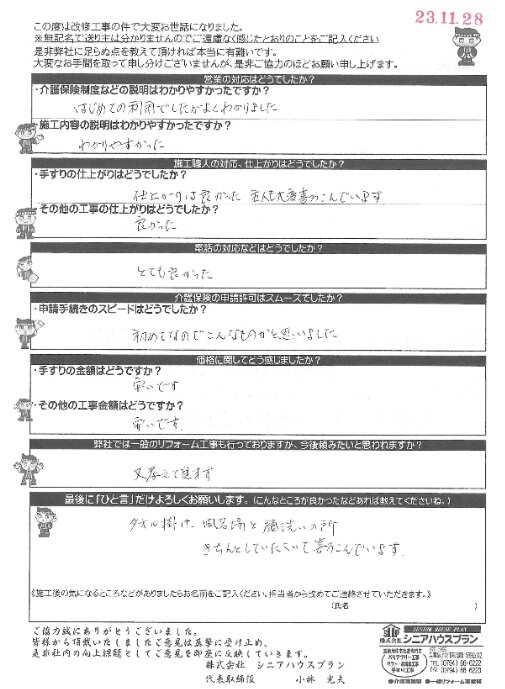 23.11.28
この度は改修工事の件で大変お世話になりました。
※無記名で送り主は分かりませんのでご遠慮なく感じたとおりのことをご記入ください
是非弊社に足らぬ点を教えて頂ければ本当に有難いです。
大変なお手間を取って申し分けございませんが、是非ご協力のほどお願い申し上げます。
営業の対応はどうでしたか?
・介護保険制度などの説明はわかりやすかったですか?
はじめての利用でしたがよくわかりました
・施工内容の説明はわかりやすかったですか?
わかりやすかった
施工職人の対応、仕上がりはどうでしたか?
・手すりの仕上がりはどうでしたか?
仕上がりは良かった 主人も大変喜んでいます
・その他の工事の仕上がりはどうでしたか?
良かった
電話の対応などはどうでしたか?
とても良かった
介護保険の申請許可はスムーズでしたか?
・申請手続きのスピードはどうでしたか?
初めてなのでこんなものかと思いました
価格に関してどう感じましたか?
・手すりの金額はどうですか?
安いです
・その他の工事金額はどうですか?
安いです
弊社では一般のリフォーム工事も行っておりますが、今後頼みたいと思われますか?
又考えて見ます
最後に「ひと言」だけよろしくお願いします。(こんなところが良かったなどあれば教えてくださいね。)
タオル掛け、風呂場と顔洗いの所
きちんとしていただいて喜こんでいます
《施工後の気になるところなどがありましたらお名前をご記入ください。担当者から改めてご連絡させていただきます。》
(氏名 )
ご協力誠にありがとうございました。
皆様から頂戴いたしましたご意見は真摯に受け止め、
是非社内の向上課題としてご意見を即座に反映していきます。
株式会社 シニアハウスプラン
代表取締役 小林 克夫
SENIOR HOUSE PLAN
株式会社 シニアハウスプラン
TEL (0794) 86-6222
FAX (0794) 86-6223